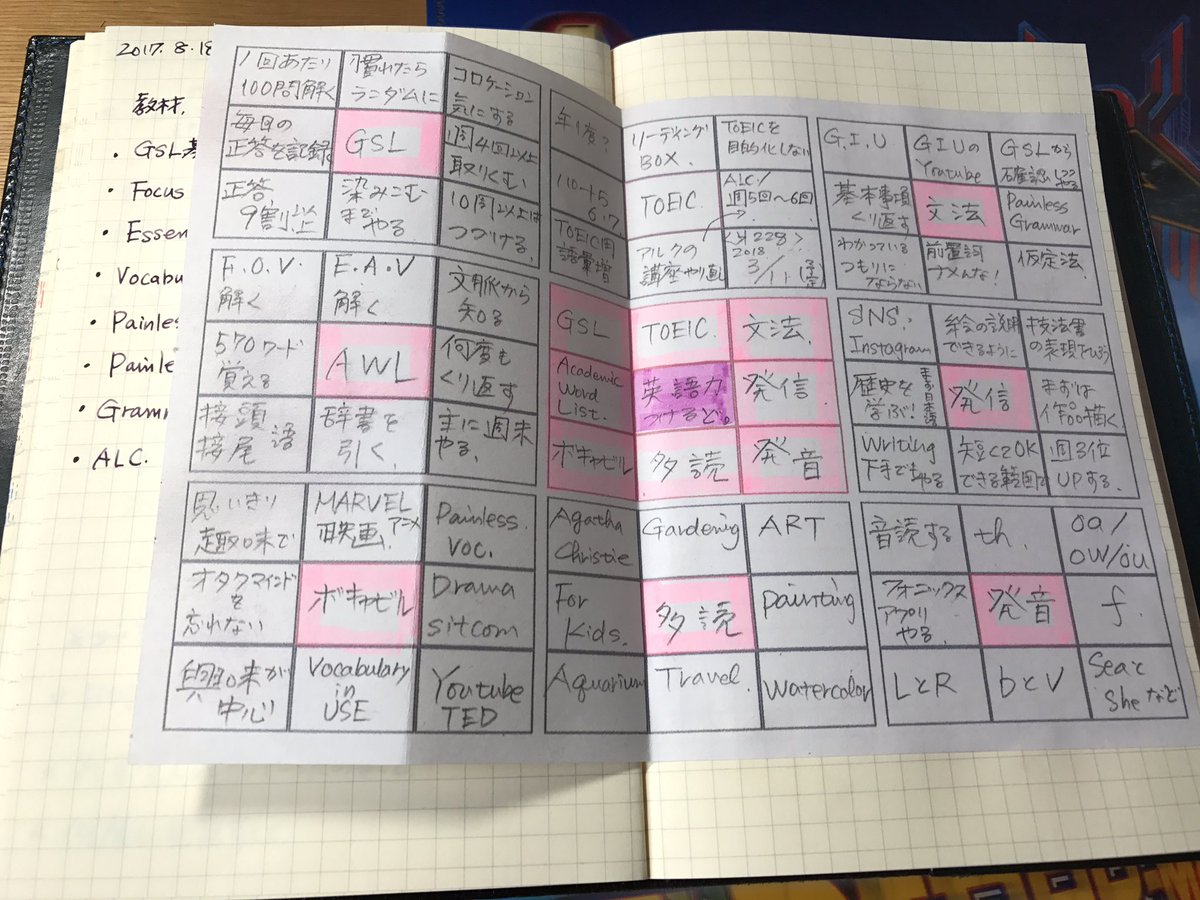 2017.8.18
教材.
・GSL
・Focus
・Essen
・Vocabu
・Painles
・Painle
・Gramm
・ALC.
1回あたり
100問解く
慣れたら
ランダムに
コロケーション
気にする
毎日の
正答を記録
GSL
週4回以上
取りくむ
正答
9割以上
染みこむ
までやる
10周以上は
つづける
年1度?
TOEIC用
語彙増
リーディング
BOX.
TOEICを
目的化しない
TOEIC.
ALC/
週5回〜6回
アルクの
講座やり直し
<第228>
2018
3/11
G.I.U
GIUの
Youtube
GSLから
確認しつつ
やる
基本事項
くり返す
文法
Painless
Grammar
わかっている
つもりに
ならない
前置詞
ナメんな!
仮定法
F.O.V.
解く
E.A.V
解く
文脈から
知る
570ワード
覚える
AWL
何度も
くり返す
接頭語
接尾
辞書を
引く
主に週末
やる.
GSL
TOEIC.
文法.
Academic
Word
List.
英語力
つけるど。
発信.
ボキャビル
多読
発音
SNS.
Instagram
絵の説明
できるように
技法書
の表現をひろう
歴史を
学ぶ!
まず日本語
発信
まずは
作品描く
Writing
下手でもやる
短くてOK
できる範囲で
週3位
UPする.
思いきり
趣味で
MARVEL
映画.アニメ
Painless.
VOC.
オタクマインド
を
忘れない
ボキャビル
Drama
sitcom
興味が
中心
Vocabulary
in
USE
Youtube
TED
Agatha
Christie
Gardening
ART
For
Kids.
多読
painting
Aquarium
Travel.
Watercolor
音読する
th.
oa/
ow/ou
フォニックス
アプリ
やる.
発音
f
LとR
bとV
Seaと
Sheなど